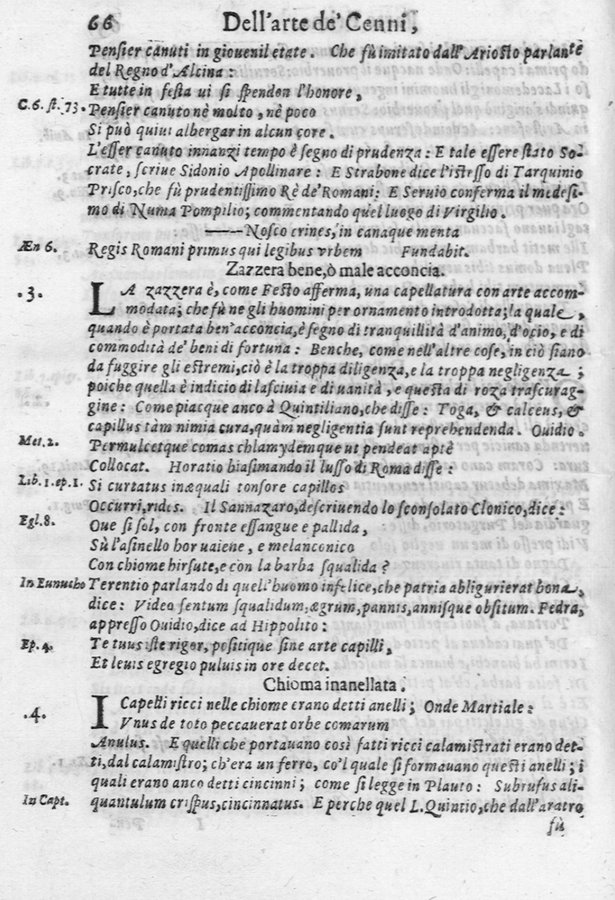 66 Dell'arte de' Cenni,
Pensier canuti in giouenil etate. Che fù imitato dall'Ariosto parlante
del Regno d'Alcina:
E tutte in festa ui si spenden l'honore,
C.6. st.73. Pensier canuto nè molto, nè poco
Si può quiui albergar in alcun core.
L'esser canuto innanzi tempo è segno di prudenza: E tale essere stato So-
crate, scriue Sidonio Apollinare: E Strabone dice l'istesso di Tarquinio
Prisco, che fù prudentissimo Rè de' Romani: E Seruio conferma il medesi-
mo di Numa Pompilio; commentando quel luogo di Virgilio.
——Nosco crines, incanaque menta
Æn 6. Regis Romani primus qui legibus vrbem Fundabit.
Zazzera bene, ò male acconcia.
.3. LA zazzera è, come Festo afferma, una capellatura con arte accom-
modata; che fù ne gli huomini per ornamento introdotta; la quale,
quando è portata ben'acconcia, è segno di tranquillità d'animo, d'ocio, e di
commodità de' beni di fortuna: Benche, come nell'altre cose, in ciò siano
da fuggire gli estremi, ciò è la troppa diligenza, e la troppa negligenza;
poiche quella è indicio di lasciuia e di uanità, e questa di roza trascurag-
gine: Come piacque anco à Quintiliano, che disse: Toga, & calceus, &
capillus tàm nimia cura, quàm negligentia sunt reprehendenda. Ouidio.
Met. 2. Permulcetque comas chlamydemque ut pendeat aptè
Collocat. Horatio biasimando il lusso di Roma disse:
Lib. 1. ep. 1. Si curtatus inæquali tonsore capillos
Occurri, rides. Il Sannazaro, descriuendo lo sconsolato Clonico, dice:
Egl. 8. Oue si sol, con fronte essangue e pallida,
Sù l'asinello hor uaiene, e melanconico
Con chiome hirsute, e con la barba squalida?
In Eunucho Terentio parlando di quell'huomo infelice, che patria abligurierat bona,
dice: Video sentum squalidum, ægrum, pannis, annisque obsitum. Fedra,
appresso Ouidio, dice ad Hippolito:
Ep. 4. Te tuus iste rigor, positique sine arte capilli,
Et leuis egregio puluis in ore decet.
Chioma inanellata.
.4. I Capelli ricci nelle chiome erano detti anelli; Onde Martiale:
Vnus de toto peccauerat orbe comarum
Anulus. E quelli che portauano così fatti ricci calamistrati erano det-
ti, dal calamistro; ch'era un ferro, co'l quale si formauano questi anelli; i
quali erano anco detti cincinni; come si legge in Plauto: Subrufus ali-
In Capt. quantulum crispus, cincinnatus. E perche quel L. Quintio, che dall'aratro
fù